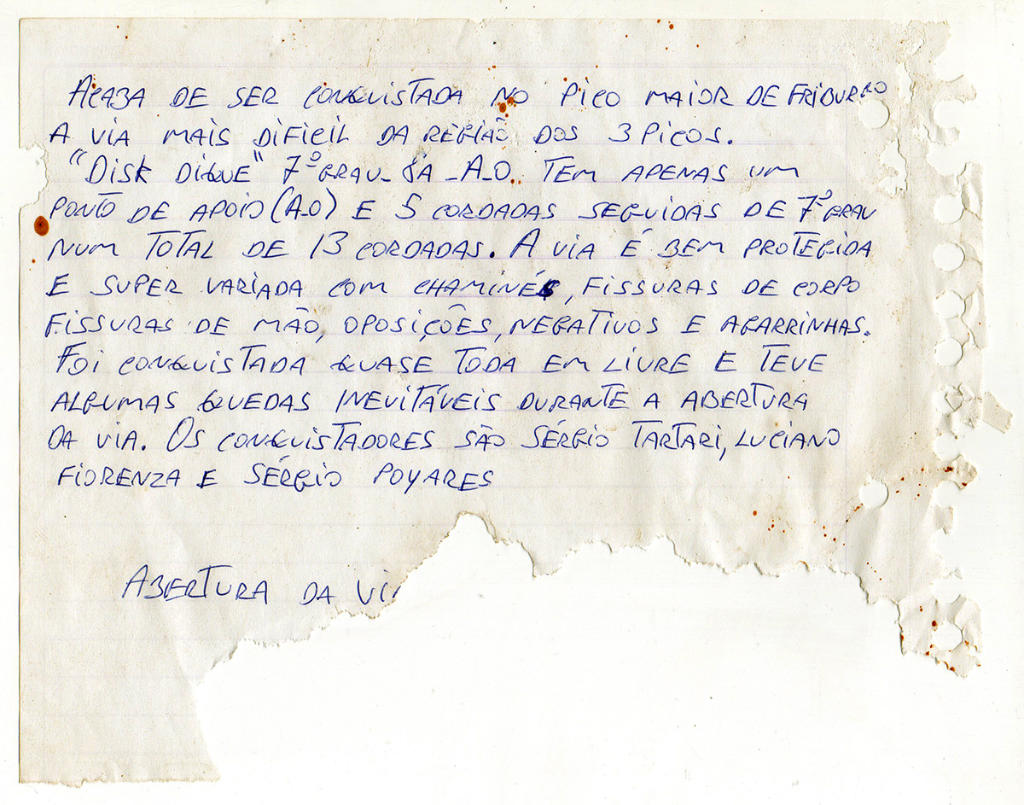 ACABA DE SER CONQUISTADA NO PICO MAIOR DE FRIBURGO
A VIA MAIS DIFICIL DA REGIÃO DOS 3 PICOS.
"DISK DIQUE" 7º GRAU_ 8A _A_0. TEM APENAS UM
PONTO DE APOIO (A_0) E 5 CORDADAS SEGUIDAS DE 7º GRAU
NUM TOTAL DE 13 CORDADAS. A VIA É BEM PROTEGIDA
E SUPER VARIADA COM CHAMINÉS, FISSURAS DE CORPO
FISSURAS DE MÃO, OPOSIÇÕES, NEGATIVOS E AGARRINHAS.
FOI CONQUISTADA QUASE TODA EM LIVRE E TEVE
ALGUMAS QUEDAS INEVITÁVEIS DURANTE A ABERTURA
DA VIA. OS CONQUISTADORES SÃO SÉRGIO TARTARI, LUCIANO
FIORENZA E SÉRGIO POYARES
ABERTURA DA